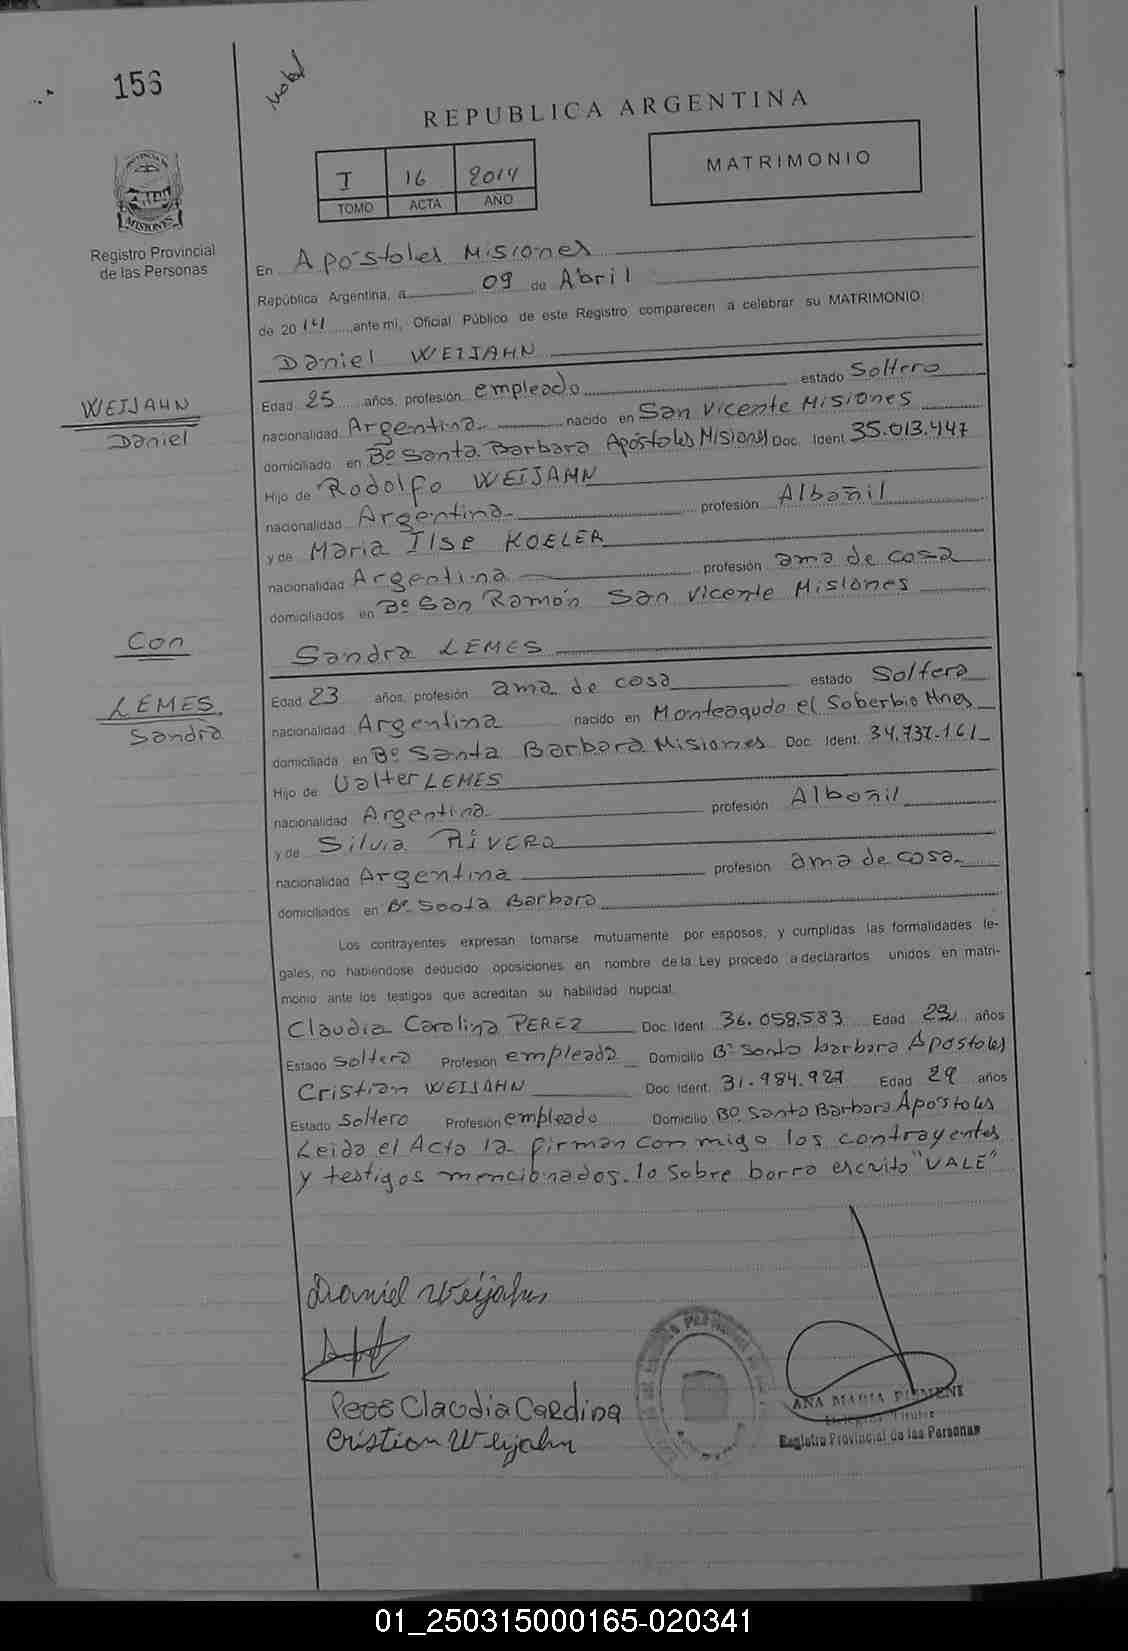 156
REPUBLICA ARGENTINA
I 16 2014
TOMO ACTA AÑO
MATRIMONIO
PROVINCIA DE
MISIONES
Registro Provincial
de las Personas
En Apóstoles Misiones
República Argentina, a 09 de Abril
de 2014 ante mi, Oficial Público de este Registro comparecen a celebrar su MATRIMONIO:
Daniel WEIJAHN
WEIJAHN
Daniel
Edad 25 años, profesión empleado estado Soltero
nacionalidad Argentina nacido en San Vicente Misiones
domiciliado en Bº Santa Barbara Apóstoles Misiones Doc. Ident 35.013.447
Hijo de Rodolfo WEIJAHN
nacionalidad Argentina profesión Albañil
y de Maria Ilse KOELER
nacionalidad Argentina profesión ama de casa
domiciliados en Bº San Ramón San Vicente Misiones
Con
Sandra LEMES
LEMES
Sandra
Edad 23 años, profesión ama de casa estado Soltera
nacionalidad Argentina nacido en Monteagudo el Soberbio Mnes
domiciliada en Bº Santa Barbara Misiones Doc. Ident. 34.737.161
Hijo de Ualter LEMES
nacionalidad Argentina profesión Albañil
y de Silvia RIVERO
nacionalidad Argentina profesión ama de casa
domiciliados en Bº Santa Barbara
Los contrayentes expresan tomarse mutuamente por esposos, y cumplidas las formalidades le-
gales, no habiéndose deducido oposiciones en nombre de la Ley procedo a declararlos unidos en matri-
monio ante los testigos que acreditan su habilidad nupcial.
Claudia Carolina PEREZ Doc. Ident. 36.058.583 Edad años
Estado Soltera Profesión empleada Domicilio Bº Santa barbara Apostoles
Cristian WEIJAHN Doc. Ident. 31.984.927 Edad 29 años
Estado Soltero Profesión empleado Domicilio Bº Santa Barbara Apóstoles
Leida el Acta la firman con migo los contrayentes
y testigos mencionados. lo sobre borra escrito "VALE"
Daniel Weijahn
Claudia Carolina
Cristian Weijahn
ANA MARIA
Titular
Registro Provincial de las Personas
01_250315000165-020341